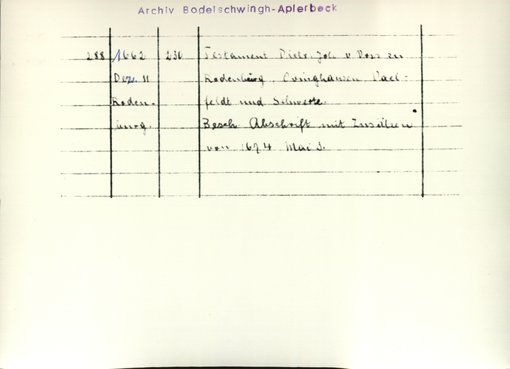 Archiv Bodelschwingh-Aplerbeck
288 1662 230 Testament Dietr. Joh. v. Voss zu
Dez. 11 Rodenberg, Evinghausen, Dael-
Roden- feldt und Schwerte.
burg. Besch. Abschrift mit Zusätzen
von 1674 Mai 3.